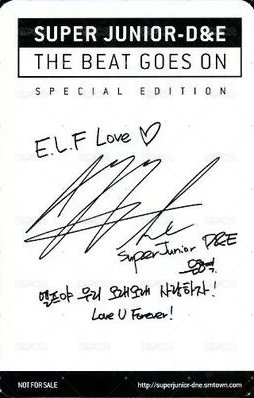 SUPER JUNIOR-D&E
THE BEAT GOES ON
SPECIAL EDITION
E.L.F Love ♡
Super Junior D&E
은혁
엘프야 우리 오래오래 사랑하자!
Love U Forever!
NOT FOR SALE
http://superjunior-dne.smtown.com